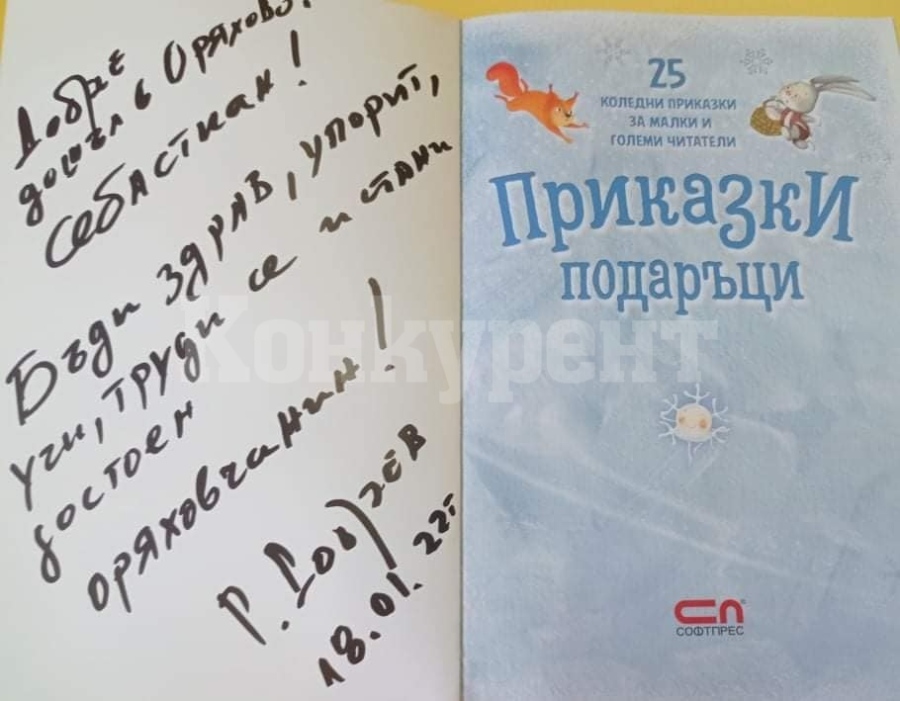 Добре
дошъл в Оряхово,
Себастиан!
Бъди здрав, упорит,
учи, труди се и стани
достоен
оряховчанин!
Р.
18.01.22г
25
КОЛЕДНИ ПРИКАЗКИ
ЗА МАЛКИ И
ГОЛЕМИ ЧИТАТЕЛИ
ПРИКАЗКИ
ПОДАРЪЦИ
СП
СОФТПРЕС
Конкурент